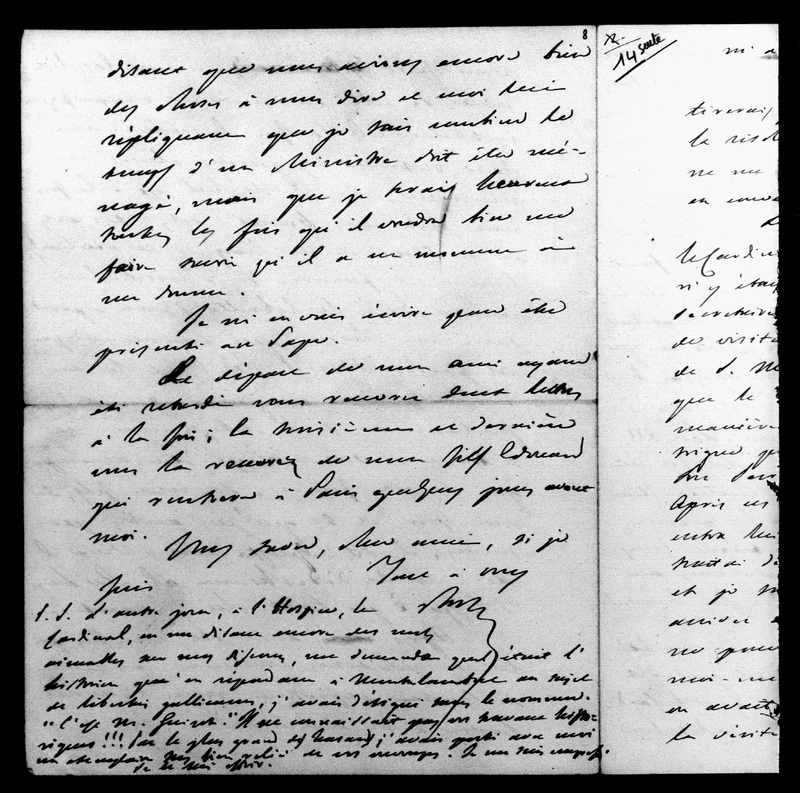 8
disant que nous avions encore bien
des choses à nous dire et moi lui
répliquant que je sais combien le
temps d'un Ministre doit être mé-
nagé, mais que je serais heureux
toutes les fois qu'il voudra bien me
faire savoir qu'il a un moment à
me donner.
Je m'en vais écrire pour être
présenté au Pape.
Le départ de mon ami ayant
été retardé vous recevrez deux lettres
à la fois ; la troisième et dernière
vous la recevrez de mon fils Edouard
qui rentrera à Paris quelques jours avant
moi.
Vous savez, cher ami, si je
suis
Tout à vous
P. S. L'autre jour, à l'Hospice, le
Cardinal, en me disant encore des mots
aimables sur mon discours, me demanda quel était l'
historien qu'en répondant à Montalembert au sujet
de libertés gallicanes, j'avais désigné sans le nommer.
"C'est M. Guizot." Il ne connaissait pas vos travaux histo-
riques !!! Par le plus grand des hasards, j'avais porté avec moi
un exemplaire très bien relié de vos ouvrages. Je me suis empressé
de le lui offrir.
14 suite
tirerais
ne
Le Cardin
secrétaire
de visite
de S. M
que le
manière
Après
et je
moi-me
en avait
la visite